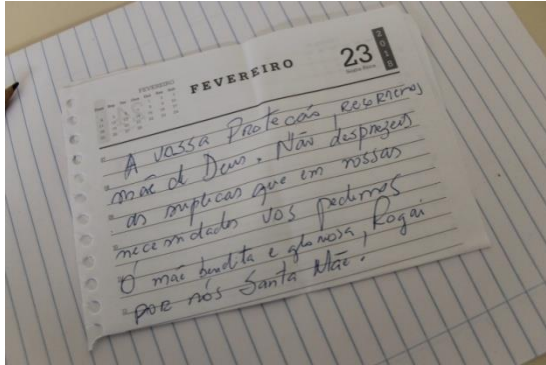 FEVEREIRO
FEVEREIRO
23
2015
A vossa Proteção, recorremos
mãe de Deus. Não desprezeis
as suplicas que em nossas
necessidades vos pedimos
Ó mãe bendita e gloriosa, Rogai
por nós Santa Mãe.